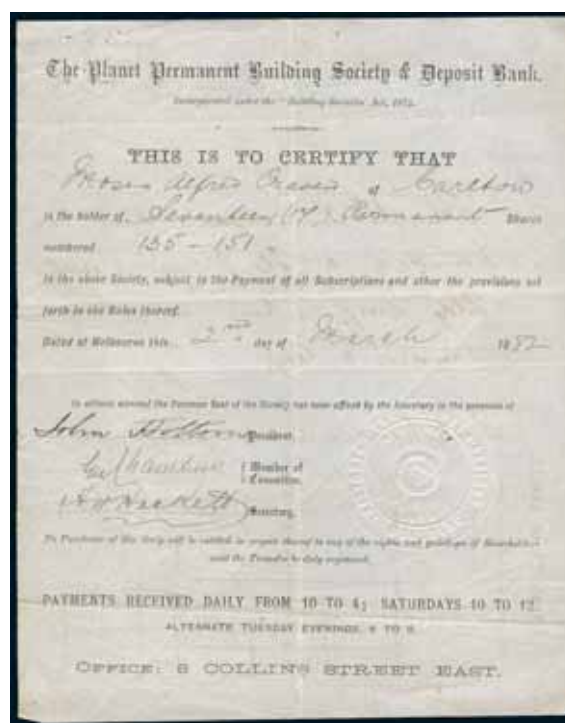 The Planet Permanent Building Society & Deposit Bank.
Incorporated under the "Building Societies" Act, 1874.
THIS IS TO CERTIFY THAT
Moses Alfred of Carlton
is the holder of Seventeen (17) Permanent Shares
numbered 135 - 151
in the above Society, subject to the Payment of all Subscriptions and other the provisions set
forth in the Rules thereof.
Dated at Melbourne this 2nd day of March 1882
In witness whereof the Common Seal of the Society has been affixed by the Secretary in the presence of
John President.
Member of
Committee.
Secretary.
No Purchaser of this Scrip will be entitled in respect thereof to any of the rights and privileges of Shareholders
until the Transfer be duly registered.
PAYMENTS RECEIVED DAILY FROM 10 TO 4; SATURDAYS 10 TO 12.
ALTERNATE TUESDAY EVENINGS, 6 TO 8.
OFFICE: 8 COLLINS STREET EAST.